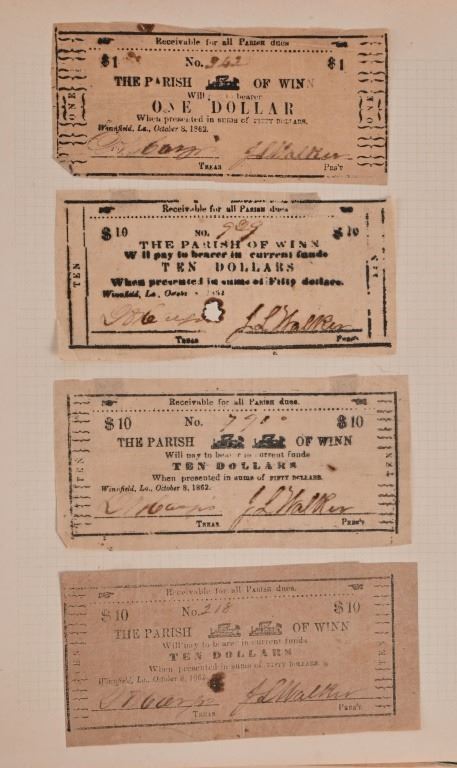 Receivable for all PARISH dues
$1 No. 942 $1
THE PARISH OF WINN
Will to bearer
ONE DOLLAR
When presented in sums of FIFTY DOLLARS.
Winnfield, La., October 8, 1862.
J L Walker
TREAS PRS'T
ONE
ONE
Receivable for all PARISH dues
$10 NO. 939 $10
THE PARISH OF WINN
Will pay to bearer in current funds
TEN DOLLARS
When presented in sums of Fifty dollars.
Winnfield, La,
J L Walker
TREAS PRES'T
TEN
TEN
Receivable for all PARISH dues.
$10 No. $10
THE PARISH OF WINN
Will pay to bearer in current funds
TEN DOLLARS
When presented in sums of FIFTY DOLLARS.
Winnfield, La., October 8, 1862.
J L Walker
TREAS PRES'T
TEN
TEN
Receivable for all PARISH dues.
$10 No. 218 $10
THE PARISH OF WINN
Will pay to bearer in current funds
TEN DOLLARS
When presented in sums of FIFTY DOLLARS.
Winnfield, La., October 8, 1862
J L Walker
TREAS PRES'T
TEN
TEN